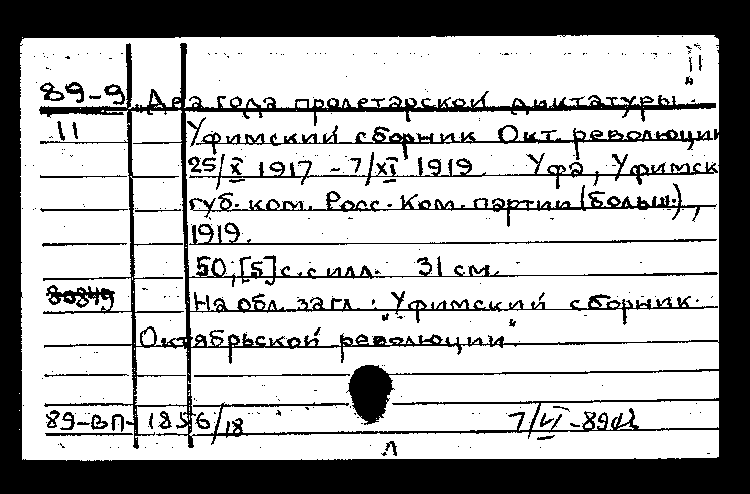 89-9 „Два года пролетарской диктатуры."
11 Уфимский сборник Окт. революции
25/X 1917 - 7/XI 1919 Уфа, Уфимск
губ. ком. Росс. Ком. партии (больш.),
1919.
50,[5] с. с илл. 31 см.
80849 На обл. загл.: „Уфимский сборник
Октябрьской революции".
89-ВП-1856/18 7/VI-89
Л